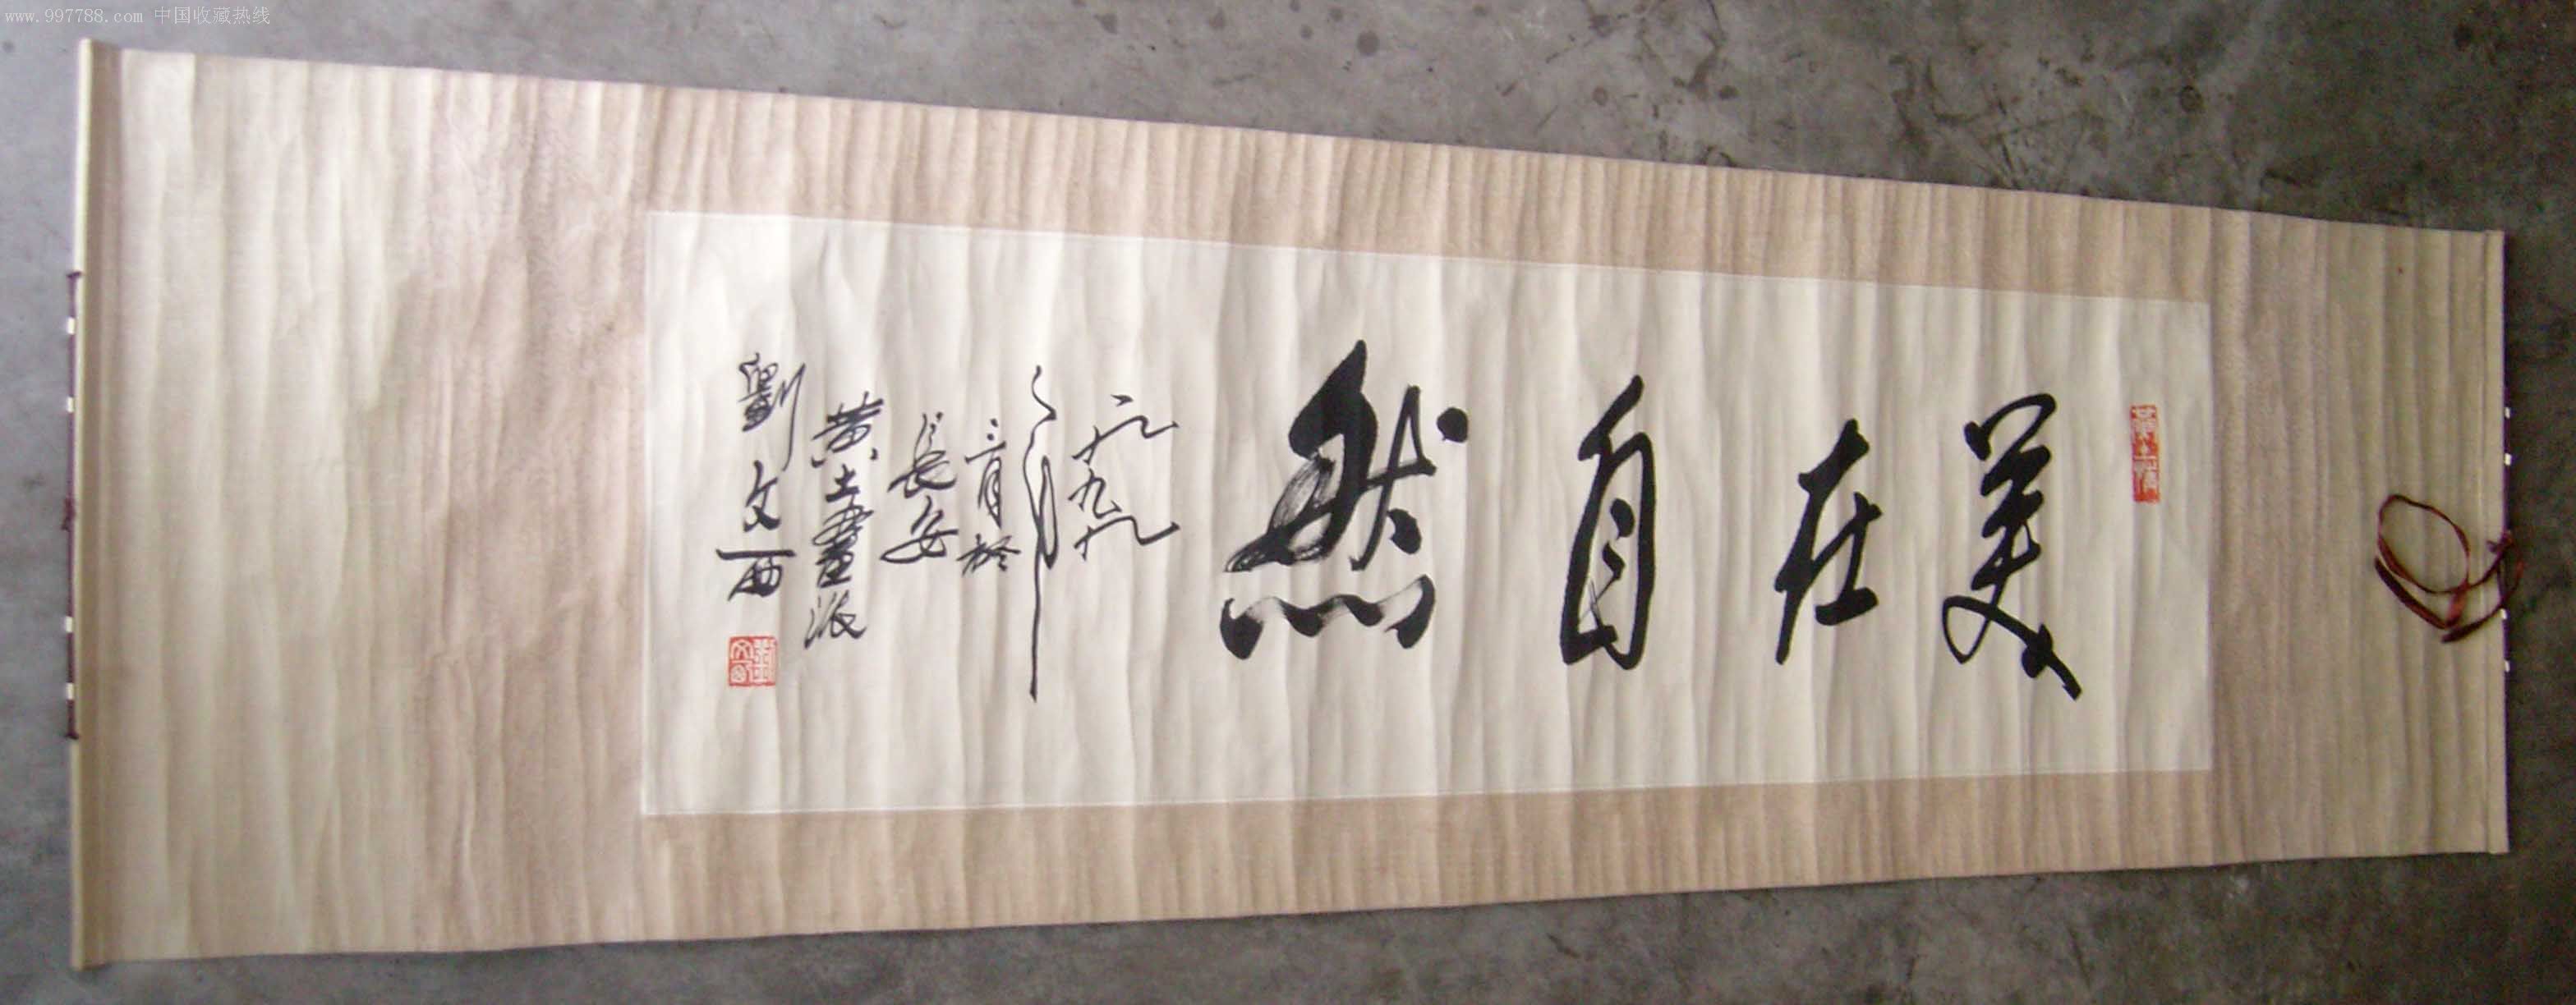 www.997788.com 中国收藏热线
美在自然
一九九八
年
二月於
長安
黄土畫派
劉文西